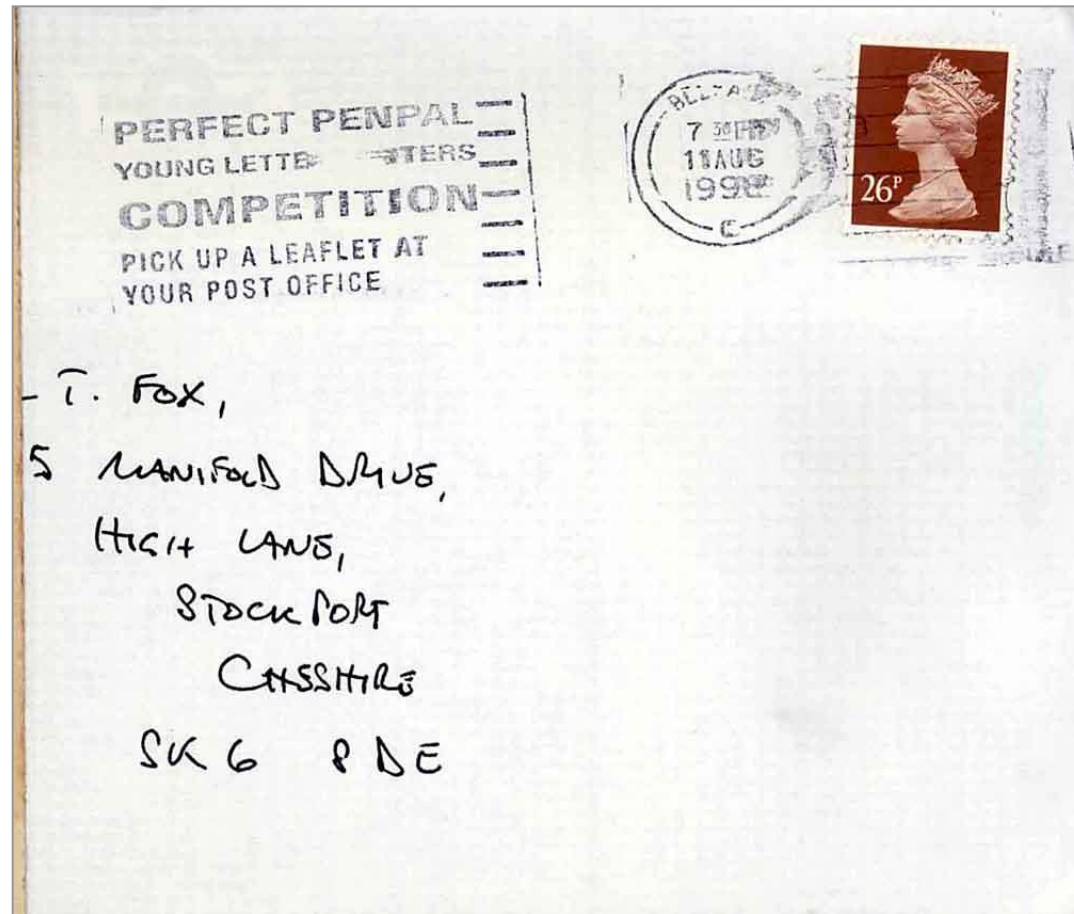 PERFECT PENPAL
YOUNG
COMPETITION
PICK UP A LEAFLET AT
YOUR POST OFFICE
7 30PM
11 AUG
1998
26P
T. FOX,
5 MANIFOLD DRIVE,
HIGH LANE,
STOCKPORT
CHESHIRE
SK6 8DE